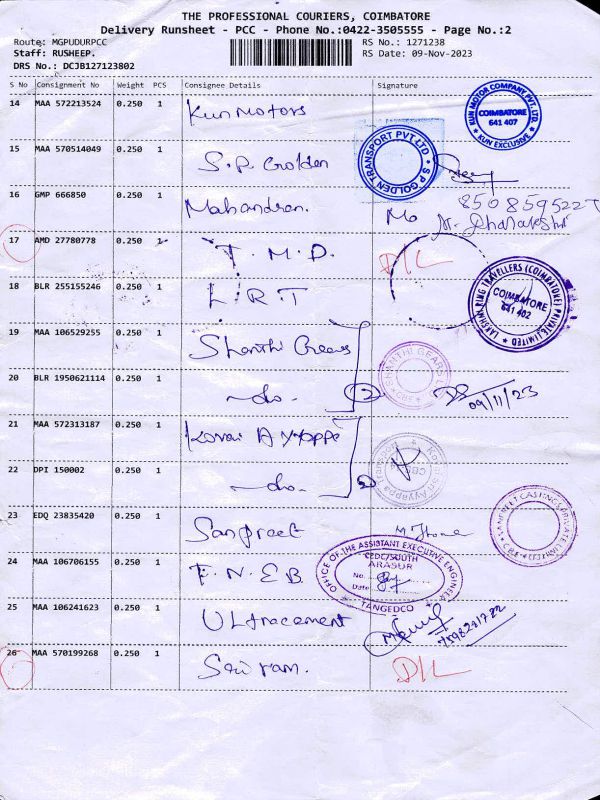 THE PROFESSIONAL COURIERS, COIMBATORE
Delivery Runsheet - PCC - Phone No.:0422-3505555 - Page No.:2
Route: MGPUDURPCC RS No.: 1271238
Staff: RUSHEEP. RS Date: 09-Nov-2023
DRS No.: DCJB127123802
S No Consignment No Weight PCS Consignee Details Signature
14 MAA 572213524 0.250 1 Kun Motors
KUN MOTOR COMPANY PVT. LTD. COIMBATORE 641 407 KUN EXCLUSIVE
15 MAA 570514049 0.250 1 S.P. Golden
S P GOLDEN TRANSPORT PVT LTD
16 GMP 666850 0.250 1 Mahandran. Mo
17 AMD 27780778 0.250 1 T.M.D. D/L
18 BLR 255155246 0.250 1 L.R.T
TRAVELLERS (COIMBATORE) PRIVATE LIMITED COIMBATORE 641 402
19 MAA 106529255 0.250 1 Shanthi Gears
SHANTHI GEARS
20 BLR 1950621114 0.250 1 -do- 2 09/11/23
21 MAA 572313187 0.250 1 Kovai Ayyappa
22 DPI 150002 0.250 1 -do- 2
23 EDQ 23835420 0.250 1 Sanpreet
24 MAA 106706155 0.250 1 T.N.E.B
OFFICE OF THE ASSISTANT EXECUTIVE ENGINEER CEDC/SOUTH ARASUR No. Date TANGEDCO
25 MAA 106241623 0.250 1 Ultracement
26 MAA 570199268 0.250 1 Sri ram. D/L